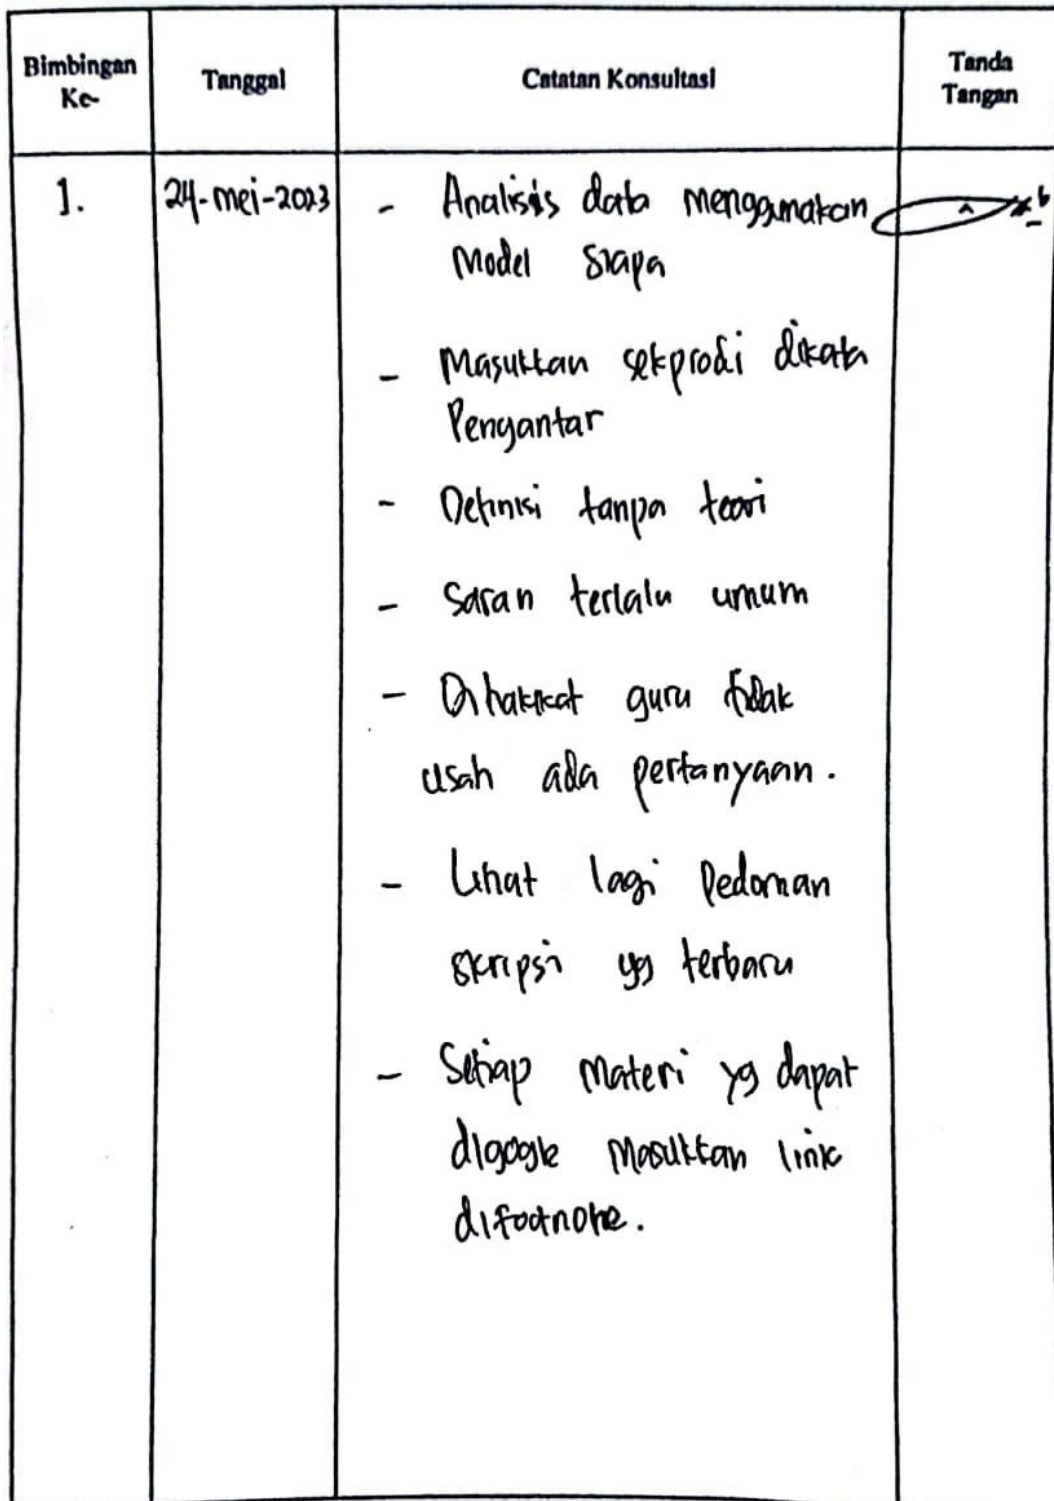 Bimbingan Ke-
Tanggal
Catatan Konsultasi
Tanda Tangan
1.
24-mei-2023
- Analisis data menggunakan
Model siapa
- Masukkan sekprodi dikata
Pengantar
- Definisi tanpa teori
- Saran terlalu umum
- Dihakikat guru tidak
usah ada pertanyaan.
- Lihat lagi Pedoman
skripsi yg terbaru
- Setiap Materi yg dapat
digoogle Masukkan link
difootnote.